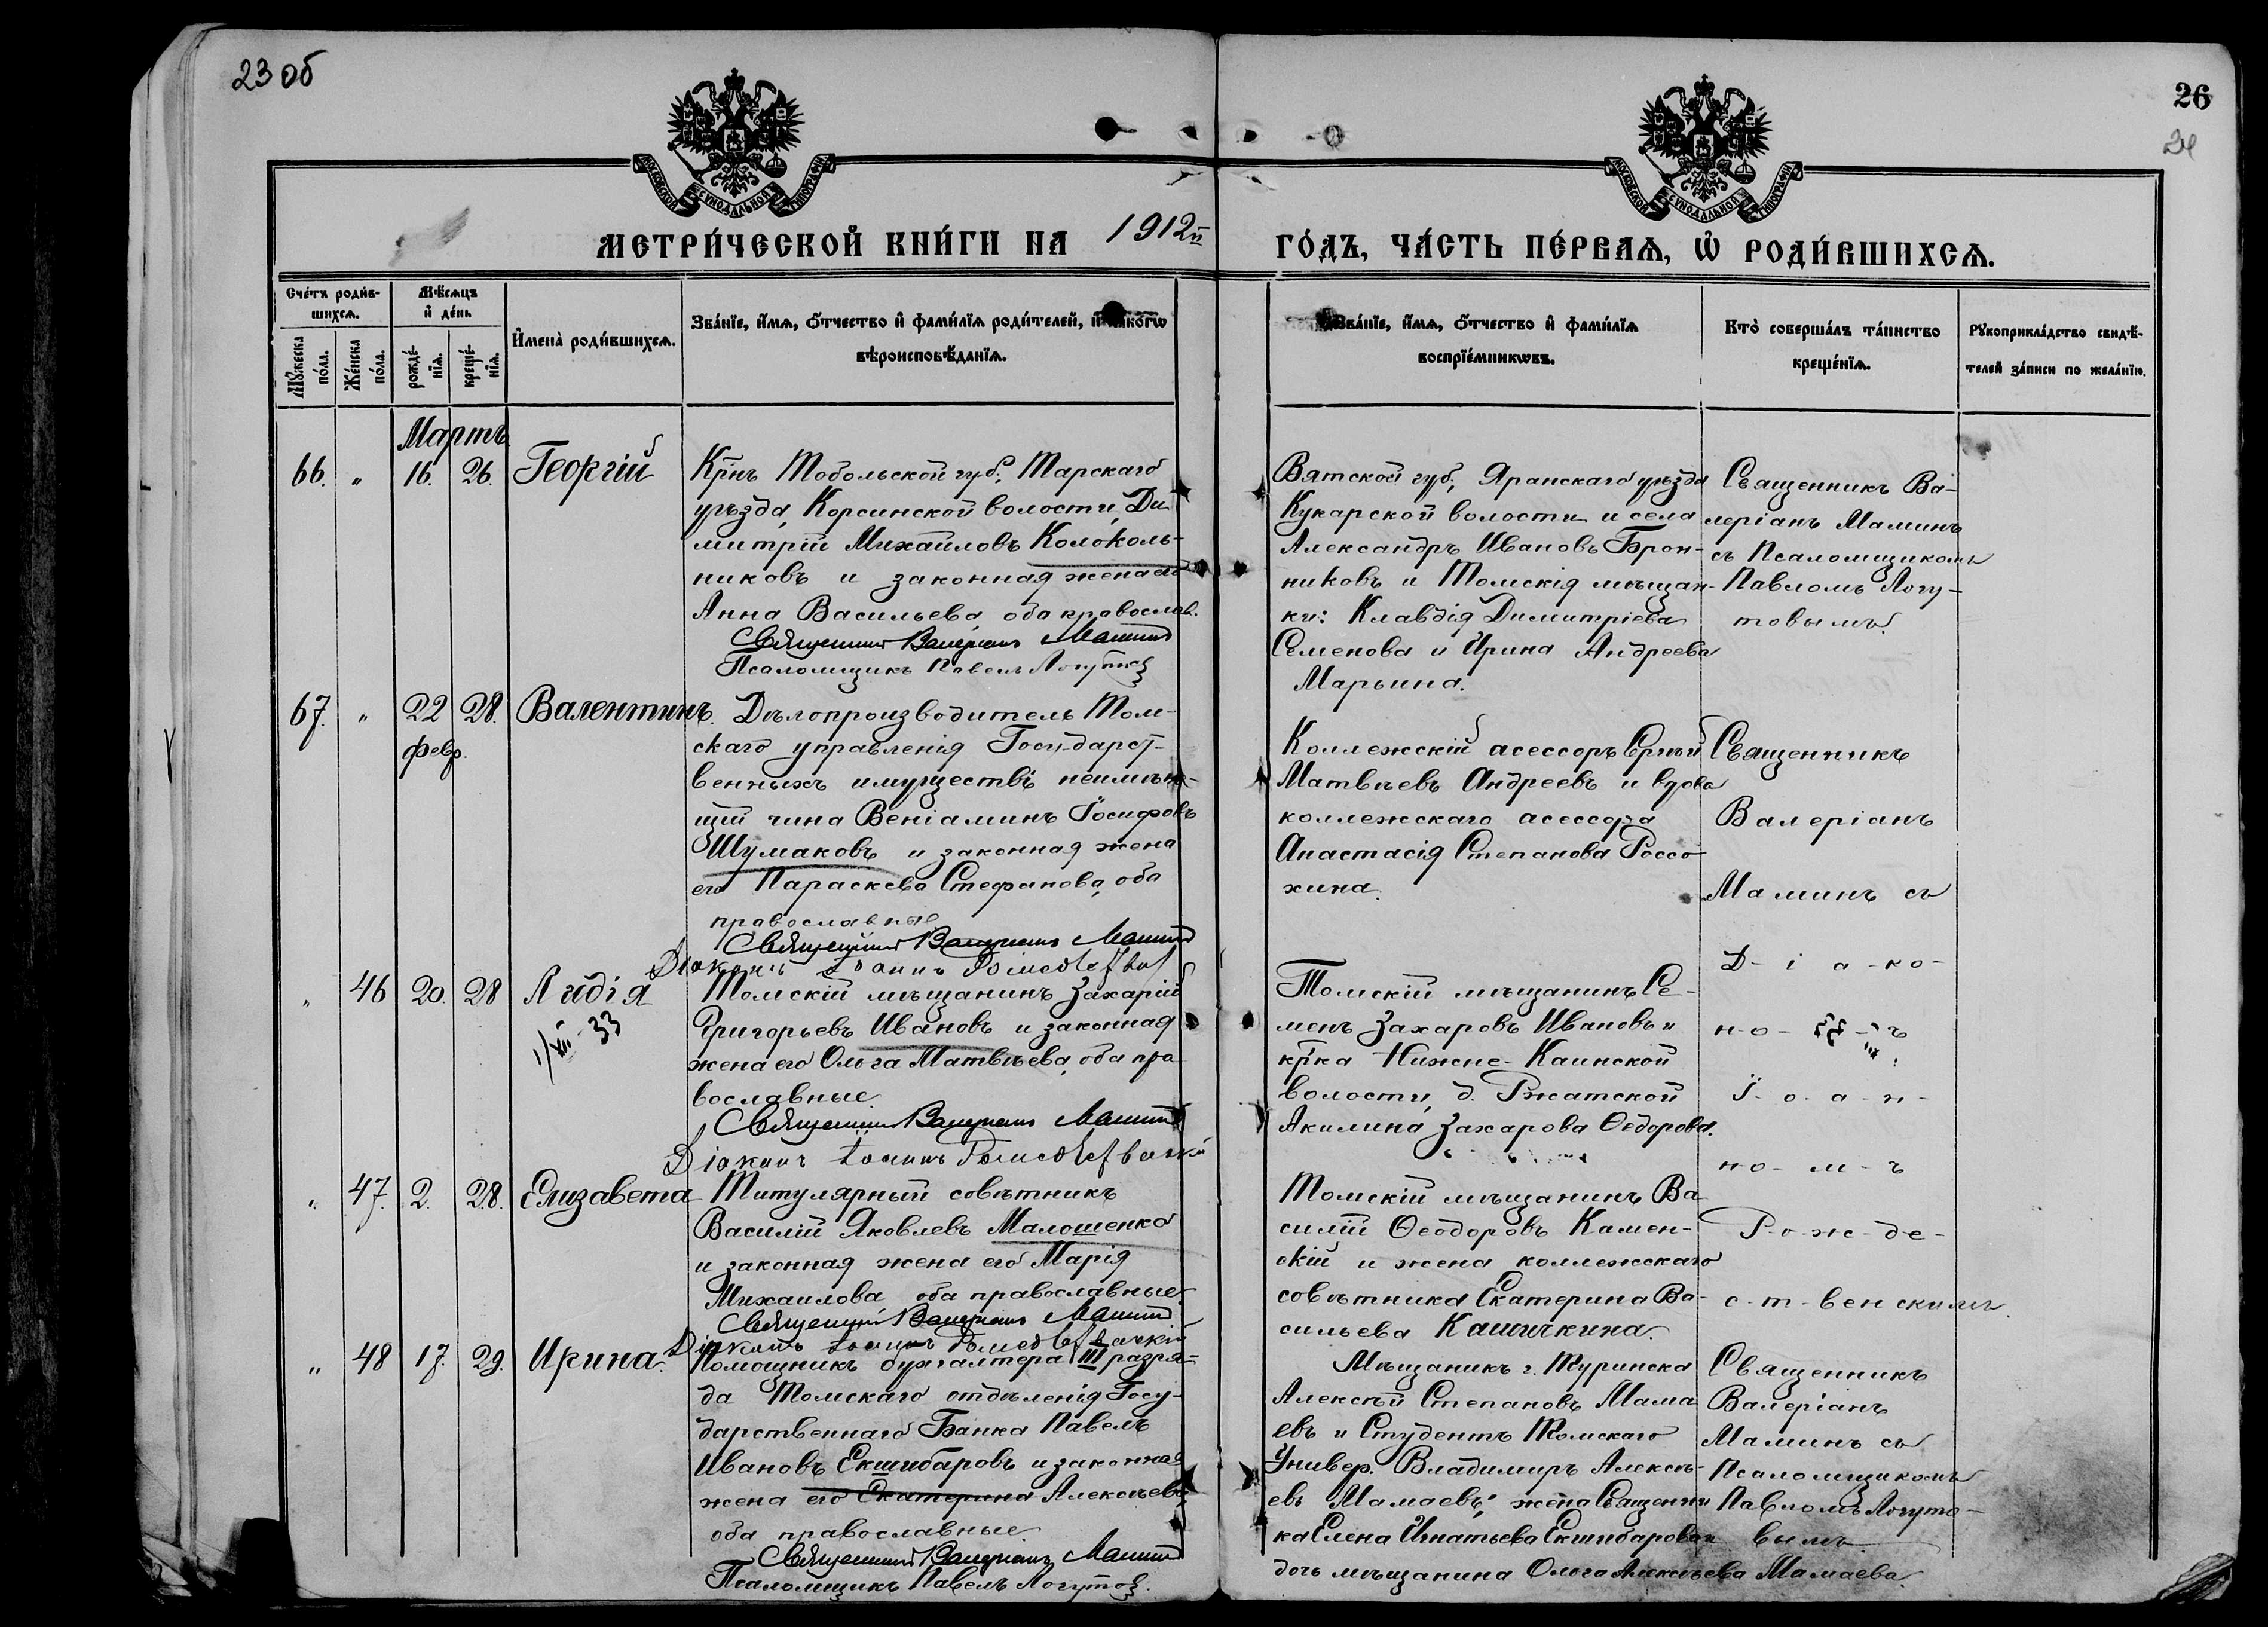 23 об
26
24
МОСКОВСКОЙ СѴНОДАЛЬНОЙ ТИПОГРАФІИ
МОСКОВСКОЙ СѴНОДАЛЬНОЙ ТИПОГРАФІИ
МЕТРИ́ЧЕСКОЙ КНИ́ГИ НА 1912й ГО́ДЪ, ЧА́СТЬ ПЕ́РВАЯ, Ѡ РОДИ́ВШИХСЯ.
Сче́тъ роди́в-
шихся.
Му́жеска по́ла.
Же́нска по́ла.
Мѣ́сяцъ и де́нь
рожде́-
нїя.
креще́-
нїя.
И҆мена̀ роди́вшихся.
Зва́нїе, и҆́мя, ѻ҆́тчество и҆ фами́лїя роди́телей, и҆ како́гѡ
вѣроисповѣ́данїя.
Зва́нїе, и҆́мя, ѻ҆́тчество и҆ фами́лїя
воспрїе́мникѡвъ.
Кто̀ соверша́лъ та́инство
креще́нїя.
Рꙋкоприкла́дство свидѣ́-
телей за́писи по жела́нїю.
Мартъ
66. " 16. 26. Георгій
Крнъ Тобольской губ., Тарскаго
уѣзда, Корсинской волости, Ди
митрій Михаиловъ Колоколь-
никовъ и законная жена его
Анна Васильева, оба православ.
Священникъ Валеріанъ Маминъ
Псаломщикъ Павелъ Логутов
Вятской губ., Яранскаго уѣзда
Кукарской волости и села
Александръ Ивановъ Брон-
никовъ и Томскія мѣщан-
ки: Клавдія Димитріева
Семенова и Ирина Андреева
Марьина.
Священникъ Ва-
леріанъ Маминъ
съ Псаломщикомъ
Павломъ Логу-
товымъ.
67. " 22 февр. 28. Валентинъ.
Дѣлопроизводитель Том-
скаго управленія Государст-
венныхъ имуществъ неимѣю-
щій чина Веніаминъ Іосифовъ
Шумаковъ и законная жена
его Параскева Стефанова, оба
православные
Священникъ Валеріанъ Маминъ
Діаконъ Іоаннъ
Коллежскій асессоръ Сергѣй
Матвѣевъ Андреевъ и вдова
коллежскаго асессора
Анастасія Степанова Россо
хина.
Священникъ
Валеріанъ
Маминъ съ
Д-і а-ко-
н-о- -ъ
І-о-а-н-
но-м-ъ
Р-о-ж-де-
с-т-венскимъ
" 46 20. 28 Лидія
1/XII-33
Томскій мѣщанинъ Захарій
Григорьевъ Ивановъ и законная
жена его Ольга Матвѣева, оба пра
вославные.
Священникъ Валеріанъ Маминъ
Діаконъ Іоаннъ
Томскій мѣщанинъ Се-
менъ Захаровъ Ивановъ и
кр҃ка Нижне-Каинской
волости, д. Ржатской
Акилина Захарова Ѳедорова.
" 47. 2. 28. Елизавета
Титулярный совѣтникъ
Василій Яковлевъ Малошенко
и законная жена его Марія
Михаилова, оба православные.
Священникъ Валеріанъ Маминъ
Діаконъ Іоаннъ
Томскій мѣщанинъ Ва
силій Ѳеодоровъ Камен-
скій и жена коллежскаго
совѣтника Екатерина Ва-
сильева Кашичкина.
" 48 17. 29. Ирина.
Помощникъ бухгалтера III разря-
да Томскаго отдѣленія Госу-
дарственнаго Банка Павелъ
Ивановъ Екшибаровъ и законная
жена его Екатерина Алексѣева,
оба православные
Священникъ Валеріанъ Маминъ
Псаломщикъ Павелъ Логутов.
Мѣщаникъ г. Туринска
Алексѣй Степановъ Мама
евъ и Студентъ Томскаго
Универ. Владимиръ Алексѣ-
евъ Мамаевъ; жена священни
ка Елена Игнатьева Екшибарова и
дочь мѣщанина Ольга Алексѣева Мамаева.
Священникъ
Валеріанъ
Маминъ съ
Псаломщикомъ
Павломъ Логуто-
вымъ